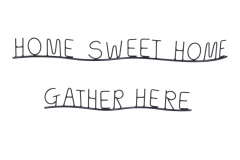 HOME SWEET HOME
GATHER HERE